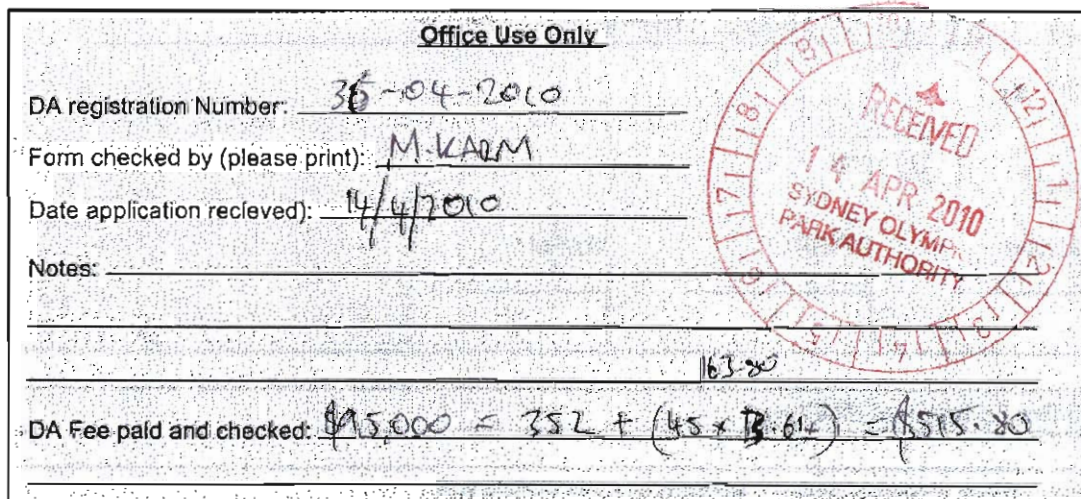 Office Use Only
DA registration Number: -04-2010
Form checked by (please print): M.KARM
Date application recieved): 14/4/2010
Notes:
163.80
DA Fee paid and checked: $95,000 = 352 + (45 x 3.64) = $515.80
RECEIVED
14 APR 2010
SYDNEY OLYMP
PARK AUTHORITY